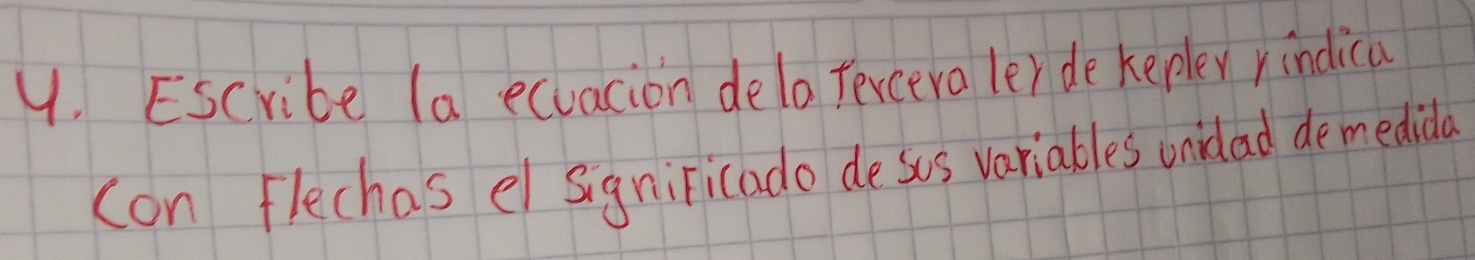 4. Escribe la ecuación de la Tercera ley de kepler y indica
con flechas el significado de sus variables unidad de medida